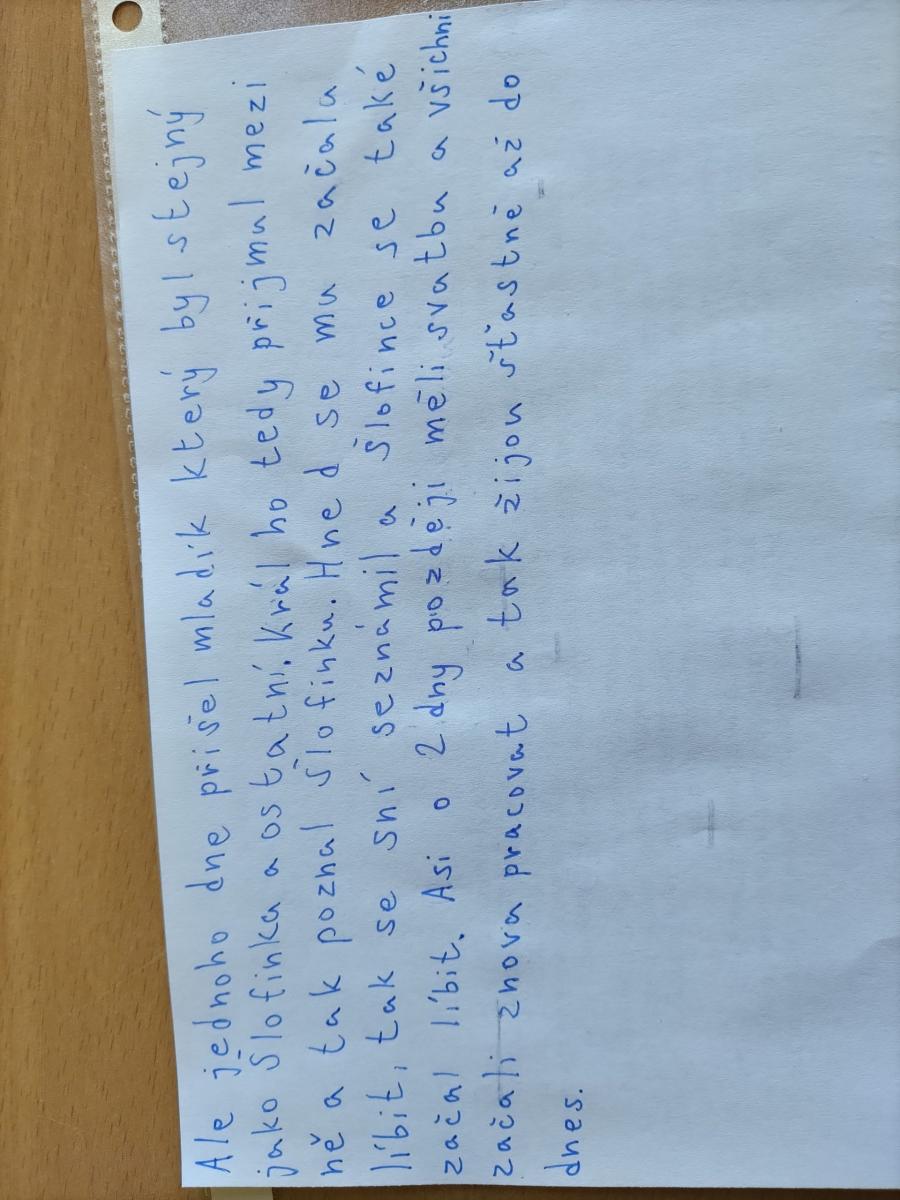 Ale jednoho dne přišel mladík který byl stejný
jako Šlofinka a ostatní. Král ho tedy přijmul mezi
ně a tak poznal Šlofinku. Hned se mu začala
líbit, tak se sní seznámil a Šlofince se také
začal líbit. Asi o 2 dny později měli svatbu a všichni
začali znova pracovat a tak žijou šťastně až do
dnes.